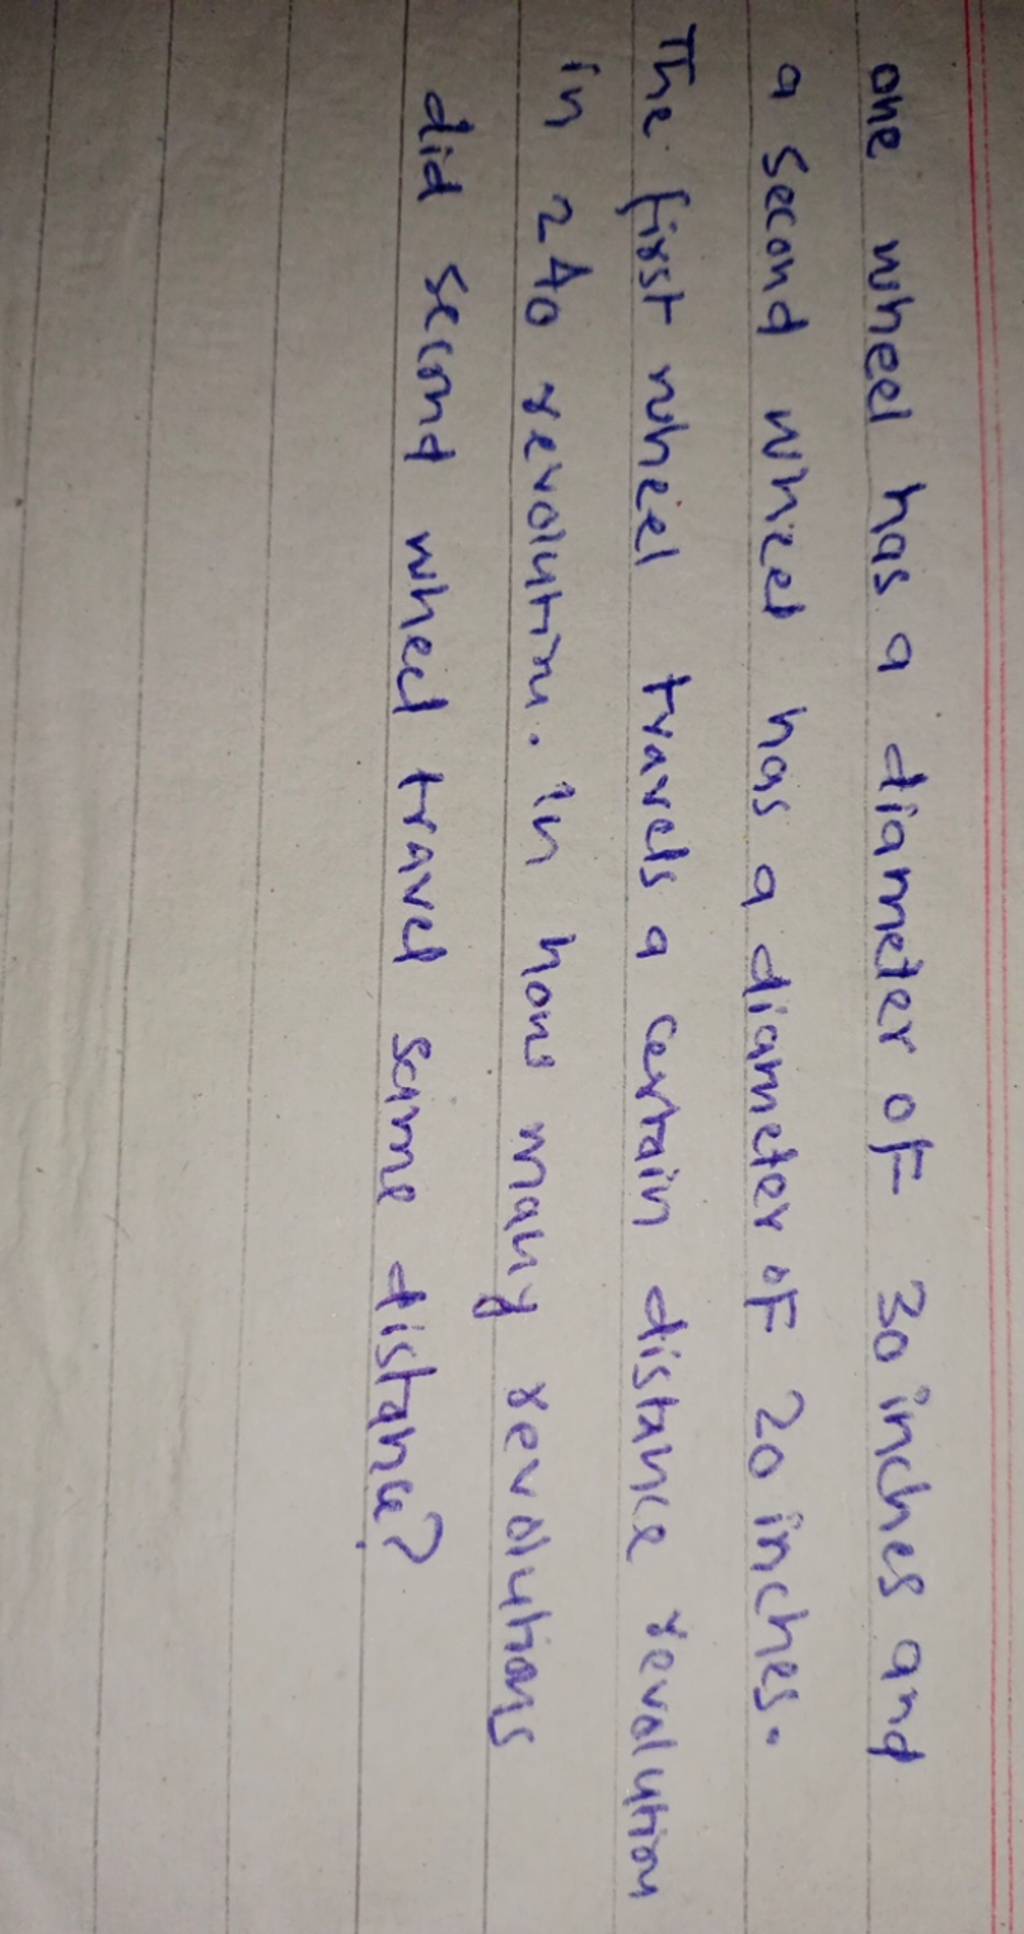 one wheel has a diameter of 30 inches and
a second wheel has a diameter of 20 inches.
The first wheel travels a certain distance revolution
in 240 revolution. In how many revolutions
did second wheel travel same distance?